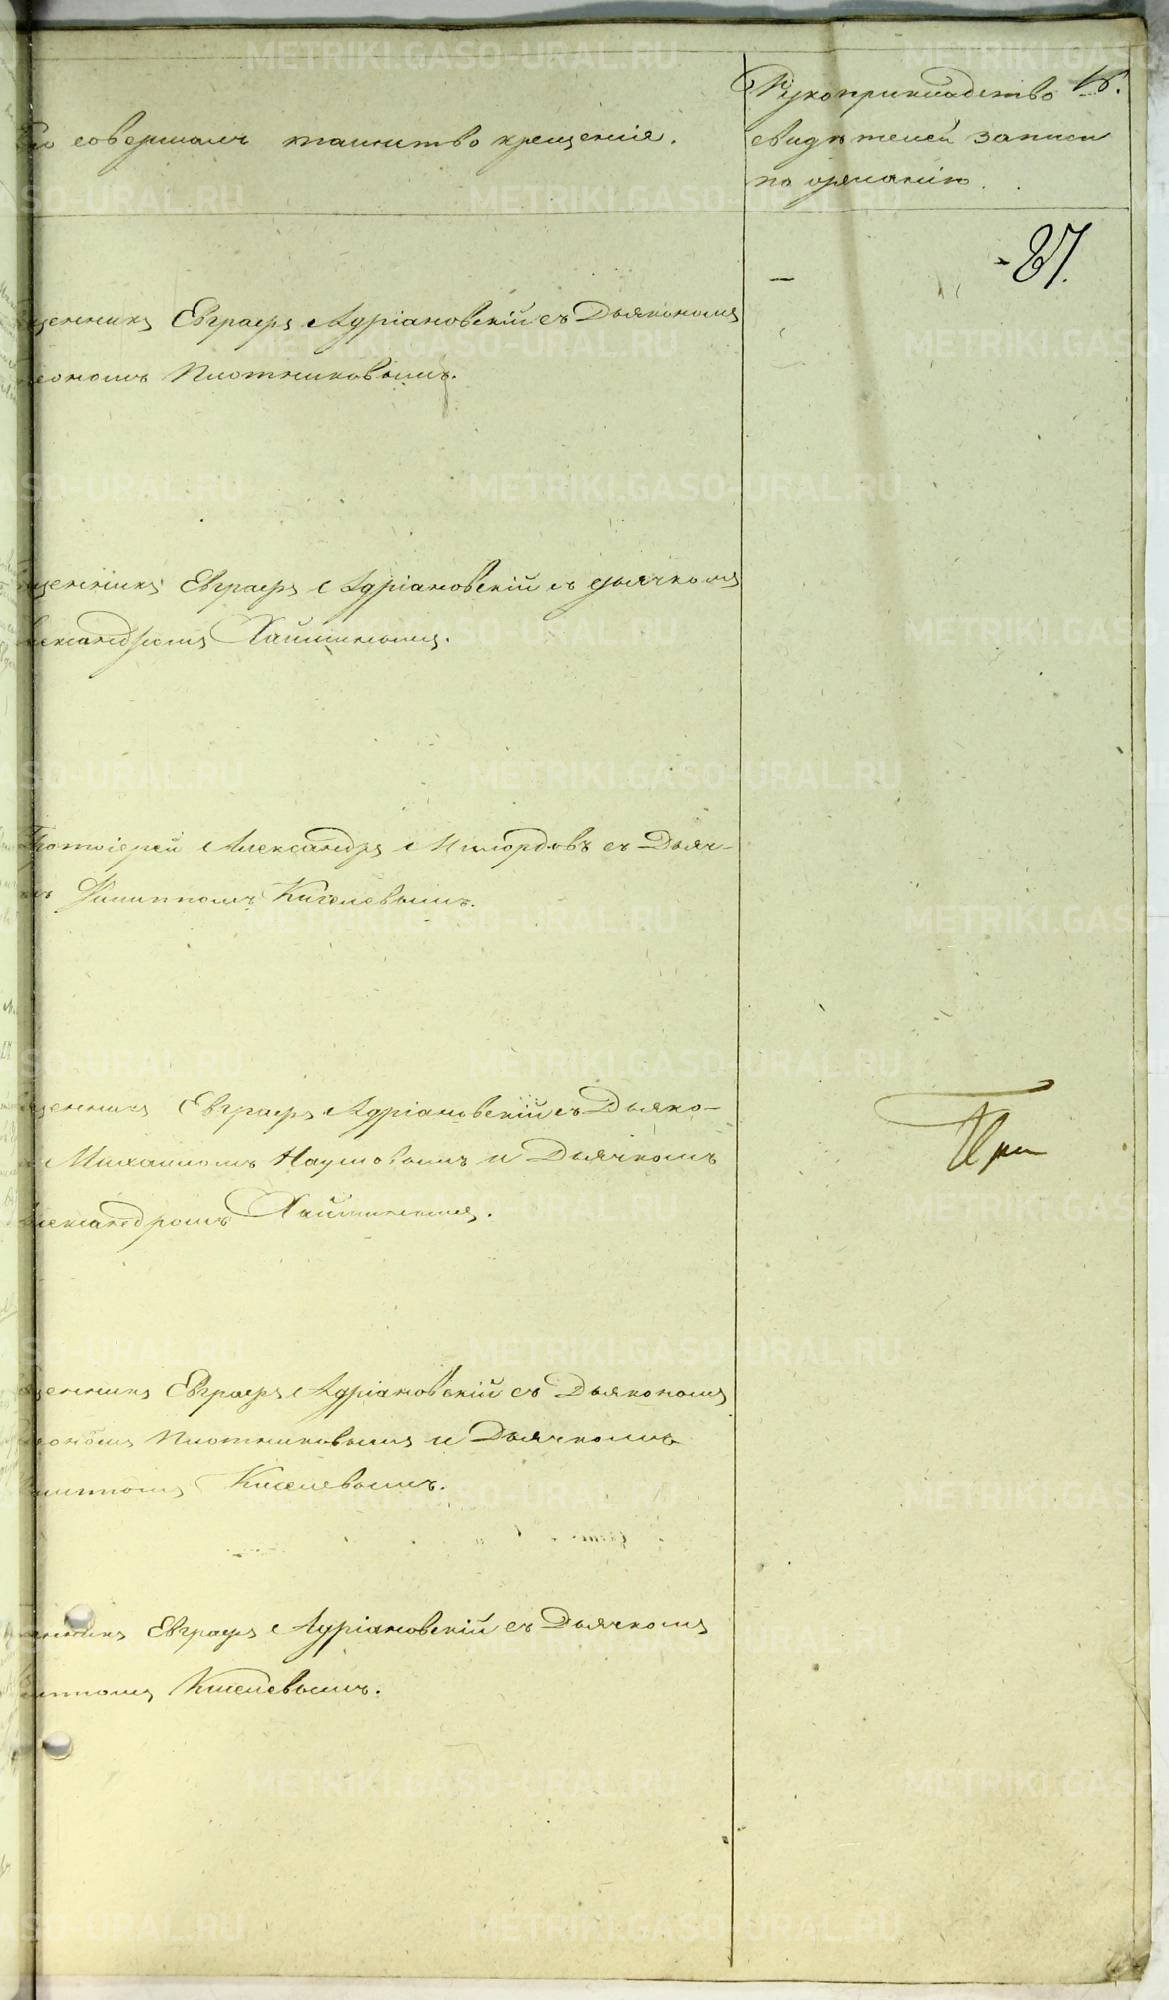 Рукоприкладство
то совершалъ таинство крещенія.
свидѣтелей записи
по желанію.
87.
щенникъ Евграфъ Адріановскій съ Дьякономъ
еономъ Плотниковымъ.
щенникъ Евграфъ Адріановскій съ дьячкомъ
лександромъ Хайминымъ.
Протоіерей Александръ Милордовъ съ Дьяч-
мъ Филиппомъ Киселевымъ.
щенникъ Евграфъ Адріановскій съ Дьяко-
Михаиломъ Наумовымъ и Дьячкомъ
лександромъ Хайминымъ.
При
щенникъ Евграфъ Адріановскій съ Дьякономъ
еономъ Плотниковымъ и Дьячкомъ
илиппомъ Киселевымъ.
щенникъ Евграфъ Адріановскій съ Дьячкомъ
липпомъ Киселевымъ.
METRIKI.GASO-URAL.RU